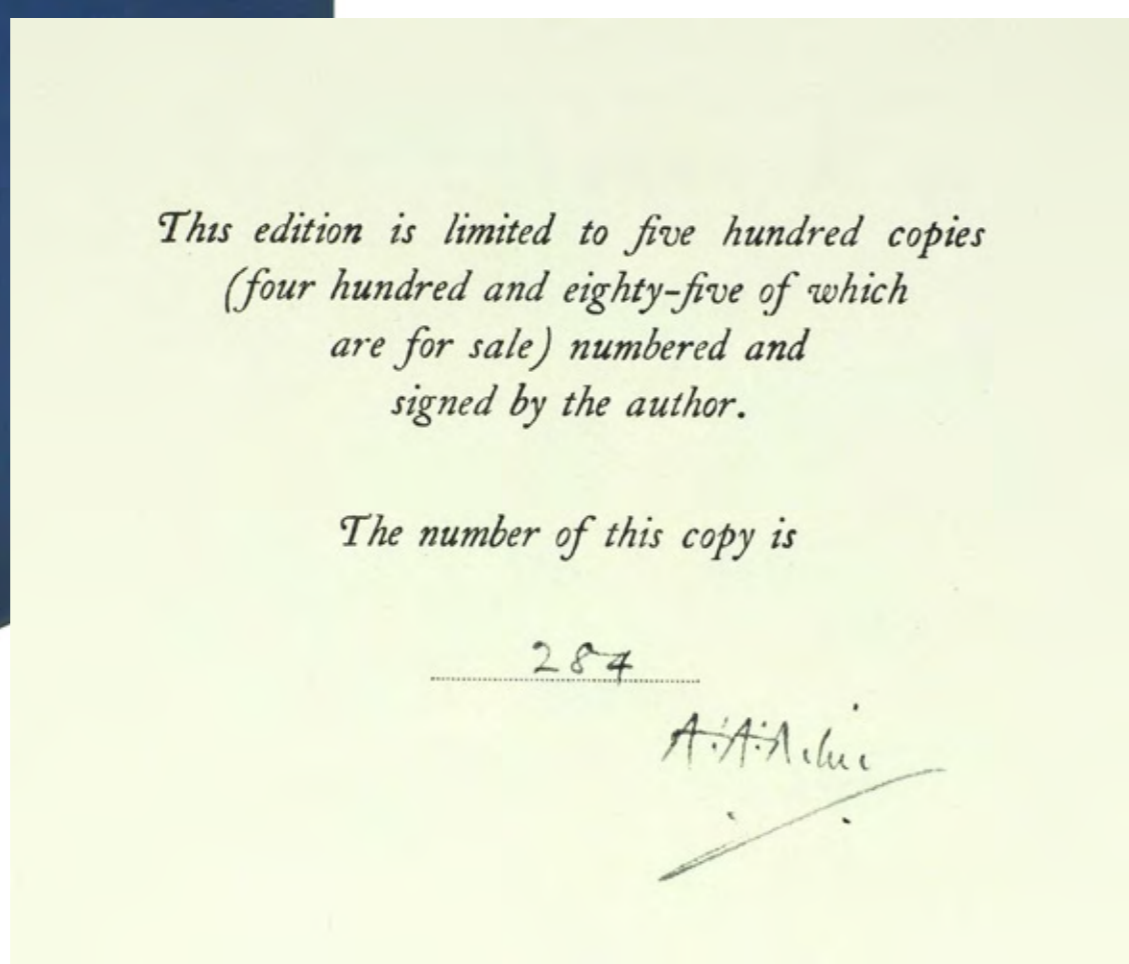 This edition is limited to five hundred copies
(four hundred and eighty-five of which
are for sale) numbered and
signed by the author.
The number of this copy is
284
A.A.Milne